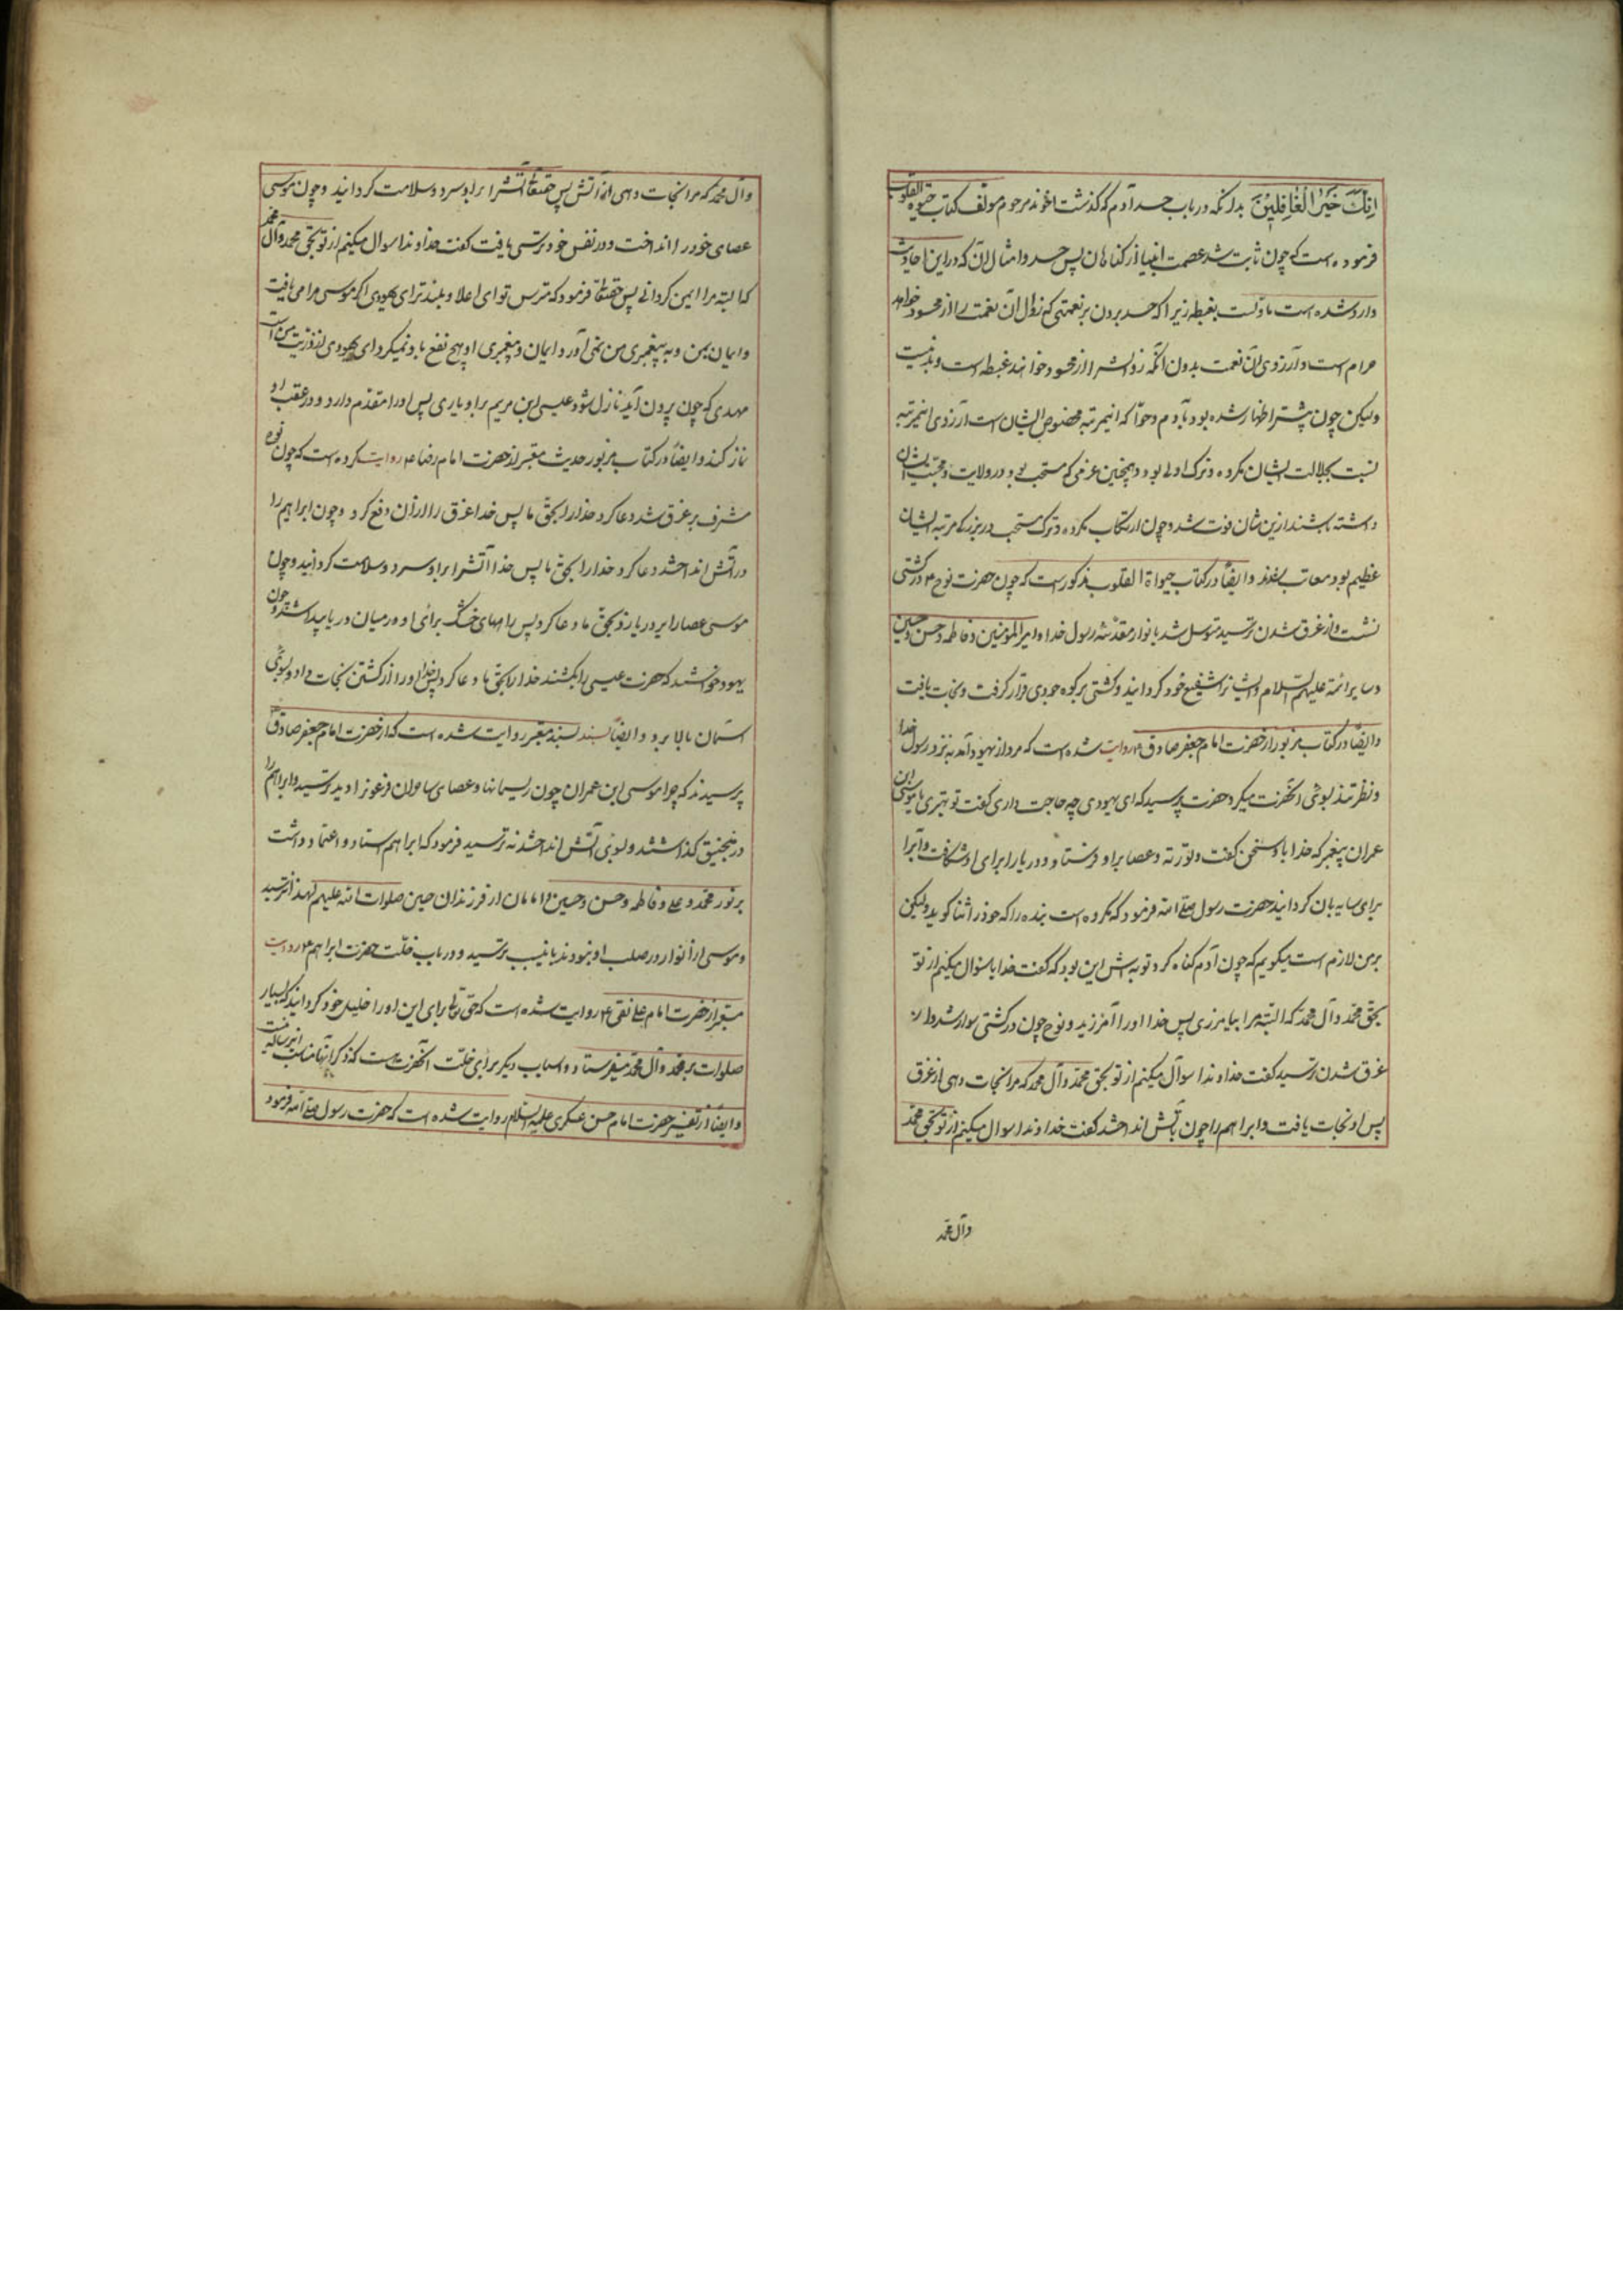 اِنَّكَ خَیْرُ الْغافِلِیْنَ بدانکه در باب حسد آدم که گذشت اخوند مرحوم مولف کتاب حیوة القلوب
فرموده است که چون ثابت شد عصمت انبیا از کناهان پس حسد و امثال آن که در این احادیث
وارد شده است ماولست بغبطه زیرا که حسد بردن بر نعمتی که زوال آن نعمت را از محسود خواهد
حرام است و آرزوی آن نعمت بدون آنکه زوالش را از محسود خواهند غبطه است و بد نیست
ولیکن چون پیشتر اظهار شده بود بآدم و حوّا که اینمرتبه مخصوص ایشان است آرزوی اینمرتبه
نسبت بجلالت ایشان مکروه و ترک اولی بود و همچنین عزمی که مستحب بود در ولایت و محبت ایشان
داشته باشند ازین شان فوت شد و چون ارتکاب مکروه و ترک مستحب در بزرکی مرتبه ایشان
عظیم بود معاتب شدند و ایضًا در کتاب حیواة القلوب مذکور است که چون حضرت نوح ع در کشتی
نشست و از غرق شدن ترسید متوسل شد بانوار مقدسه رسول خدا و امیرالمؤمنین و فاطمه و حسن و حسین
و سایر ائمه علیهم السلام و ایشانرا شفیع خود کردانید و کشتی بر کوه جودی قرار کرفت و نجات یافت
و ایضًا در کتاب مزبور از حضرت امام جعفر صادق ع روایت شده است که مرد از یهود آمد به نزد رسول خدا
و نظر تند بسوی آنحضرت میکرد حضرت پرسید که ای یهودی چه حاجت داری کفت تو بهتری یا موسی ابن
عمران پیغمبر که خدا با او سخن کفت و تورته و عصا براو فرستاد و دریا را برای او شکافت و ابر را
برای سایه بان کردانید حضرت رسول صلی الله فرمود که مکروه است بنده را که خود را ثنا کوید ولیکن
بر من لازم است میکویم که چون آدم کناه کرد توبه اش این بود که کفت خدایا سئوال میکنم از تو
بحق محمد و آل محمد که البته مرا بیامرزی پس خدا او را آمرزید و نوح چون در کشتی سوار شد و از
غرق شدن ترسید کفت خداوندا سوآل میکنم از تو بحق محمد و آل محمد که مرا نجات دهی از غرق
پس او نجات یافت و ابراهیم را چون بآتش انداختند کفت خداوندا سوال میکنم از تو بحق محمد
وآل محمد
وآل محمد که مرا نجات دهی از آتش پس حقتعالی آتش را براو سرد و سلامت کردانید و چون موسی
عصای خود را انداخت و در نفس خود ترسی یافت کفت خداوندا سوال میکنم از تو بحق محمد و آل محمد
که البته مرا ایمن کردانی پس حقتعالی فرمود که مترس توای اعلا و بلند تر ای یهودی اکر موسی مرا می یافت
و ایمان بمن و به پیغمبری من نمی آورد ایمان و پیغمبری او هیچ نفع باو نمیکرد ای یهودی از ذریت من است
مهدی که چون بیرون آید نازل شود عیسی ابن مریم براو یاری پس او را مقدم دارد و در عقب او
نماز کند و ایضًا در کتاب مزبور حدیث معتبر از حضرت امام رضا ع روایت کرده است که چون نوح
مشرف بر غرق شد دعا کرد خدا را بحق ما پس خدا غرق را از آن دفع کرد و چون ابراهیم را
در آتش انداختند دعا کرد خدا را بحق ما پس خدا آتش را براو سرد و سلامت کردانید و چون
موسی عصا را بر دریا زد بحق ما دعا کرد پس راههای خشک برای او در میان دریا پیدا شد و چون
یهود خواستند که حضرت عیسی را بکشند خدا را بحق ما دعا کرد پس خدا او را از کشتن نجات داد و بسوی
آسمان بالا برد و ایضًا بسند بسند معتبر روایت شده است که از حضرت امام جعفر صادق ع
پرسیدند که چرا موسی ابن عمران چون ریسمانها و عصای ساحران فرعونرا دید ترسید و ابراهیم را
در منجنیق گذاشتند و بسوی آتش انداختند نه ترسید فرمود که ابراهیم استناد و اعتماد داشت
بر نور محمد و علی و فاطمه و حسن و حسین و امامان از فرزندان حسین صلوات الله علیهم لهذا نترسید
و موسی را انوار در صلب او نبودند باینسبب ترسید و در باب خلّت حضرت ابراهیم ع روایت
معتبر از حضرت امام علی نقی ع روایت شده است که حق تعالی برای این او را خلیل خود کردانید که بسیار
صلوات بر محمد و آل محمد میفرستاد و اسباب دیکر برای خلّت آنحضرت هست که ذکر آنها مناسب این رساله نیست
و ایضًا از تفسیر حضرت امام حسن عسکری علیه السلام روایت شده است که حضرت رسول صلی الله فرمود